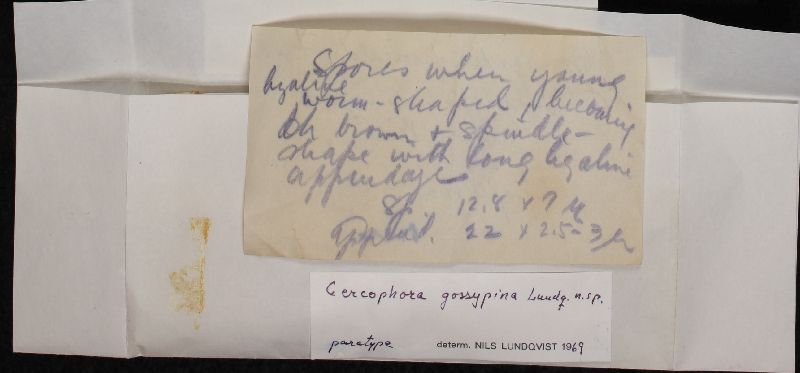 Spores when young
hyaline
worm-shaped, becoming
dk brown + spindle-
shape with long hyaline
appendage
Sp 12.8 x 7 µ
Append. 22 x 2.5-3 µ
Cercophora gossypina Lundq. n.sp.
paratype determ. NILS LUNDQVIST 1969